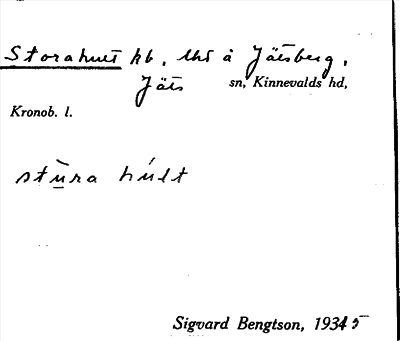 Storahult hb, ths å Jätsberg,
Jäts sn, Kinnevalds hd,
Kronob. l.
stùra húlt
Sigvard Bengtson, 1934 5